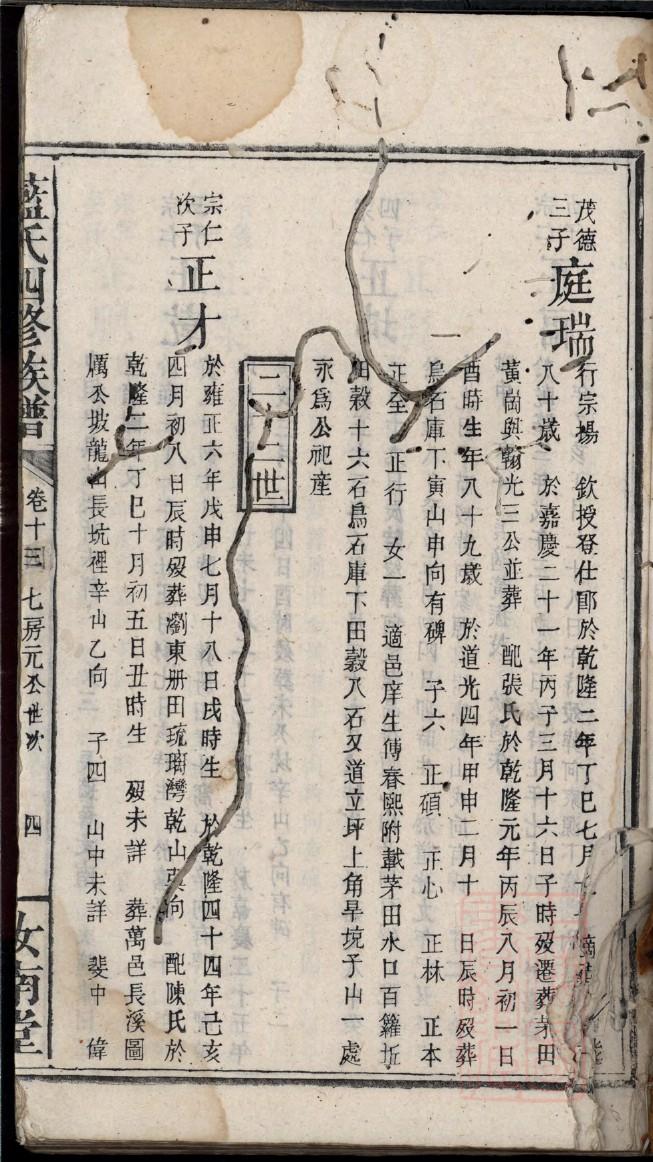 茂德
三子
庭瑞
行宗揚 欽授登仕郎於乾隆二年丁巳七月
八十歲 於嘉慶二十一年丙子三月十六日子時歿遷葬茅田
黃崗與翰光三公並葬 配張氏於乾隆元年丙辰八月初一日
酉時生年八十九歲 於道光四年甲申二月十 日辰時歿葬
烏石庫下寅山申向有碑 子六 正碩 正心 正林 正本
正至 正行 女一 適邑庠生傅春熙附載茅田水口百籮坵
田穀十六石烏石庫下田穀八石又道立坪上角旱垸子山一處
永爲公祀産
二十二世
宗仁
次子
正才
於雍正六年戊申七月十八日戌時生 於乾隆四十四年己亥
四月初八日辰時歿葬瀏東册田琉璃灣乾山巽向 配陳氏於
乾隆二年丁巳十月初五日丑時生 歿未詳 葬萬邑長溪圖
厲公坡龍山長坑裡辛山乙向 子四 山中未詳 斐中 偉
藍氏四修族譜
卷十三 七房元公世次 四
汝南堂